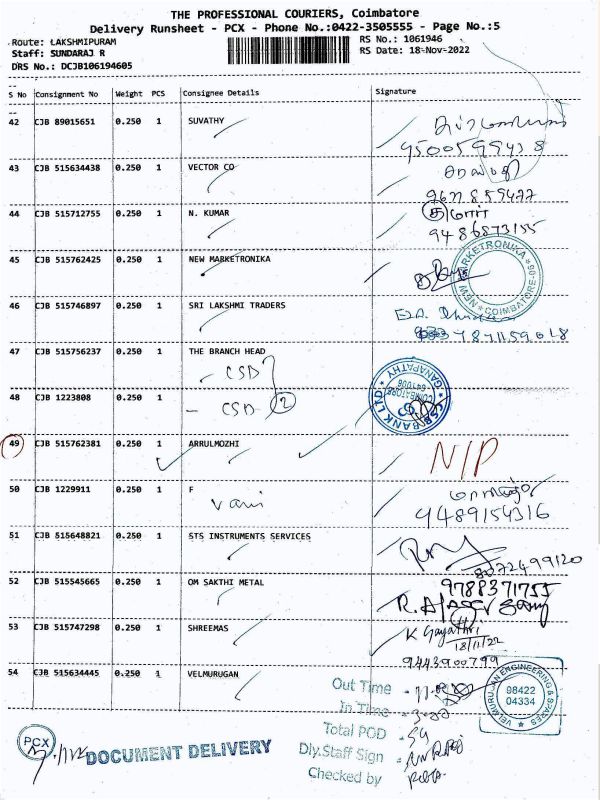 THE PROFESSIONAL COURIERS, Coimbatore
Delivery Runsheet - PCX - Phone No.:0422-3505555 - Page No.:5
Route: LAKSHMIPURAM
RS No.: 1061946
Staff: SUNDARAJ R
RS Date: 18-Nov-2022
DRS No.: DCJB106194605
S No Consignment No Weight PCS Consignee Details Signature
42 CJB 89015651 0.250 1 SUVATHY
43 CJB 515634438 0.250 1 VECTOR CO
9500599438
44 CJB 515712755 0.250 1 N. KUMAR
குமார்
9486873155
45 CJB 515762425 0.250 1 NEW MARKETRONIKA
NEW MARKETRONIKA COIMBATORE-06
46 CJB 515746897 0.250 1 SRI LAKSHMI TRADERS
7871159018
47 CJB 515756237 0.250 1 THE BRANCH HEAD
CSD
48 CJB 1223808 0.250 1
CSD 2
CSB BANK LTD GANAPATHY COIMBATORE 641006
49 CJB 515762381 0.250 1 ARRULMOZHI N/P
50 CJB 1229911 0.250 1 F
Vani
9489154316
51 CJB 515648821 0.250 1 STS INSTRUMENTS SERVICES
8072499120
52 CJB 515545665 0.250 1 OM SAKTHI METAL
9788371755
53 CJB 515747298 0.250 1 SHREEMAS
K Gayathri
18/11/22
9443900799
54 CJB 515634445 0.250 1 VELMURUGAN
VELMURUGAN ENGINEERING & SPARES
98422
04334
Out Time
In Time
Total POD - 54
Dly.Staff Sign
Checked by
PCX
DOCUMENT DELIVERY